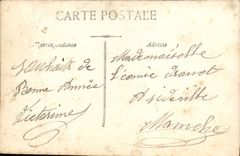 CARTE POSTALE
Correspondance
Adresse
Souhait de
Bonne Année
Victorine
Mademoiselle
Léonie
à
Manche